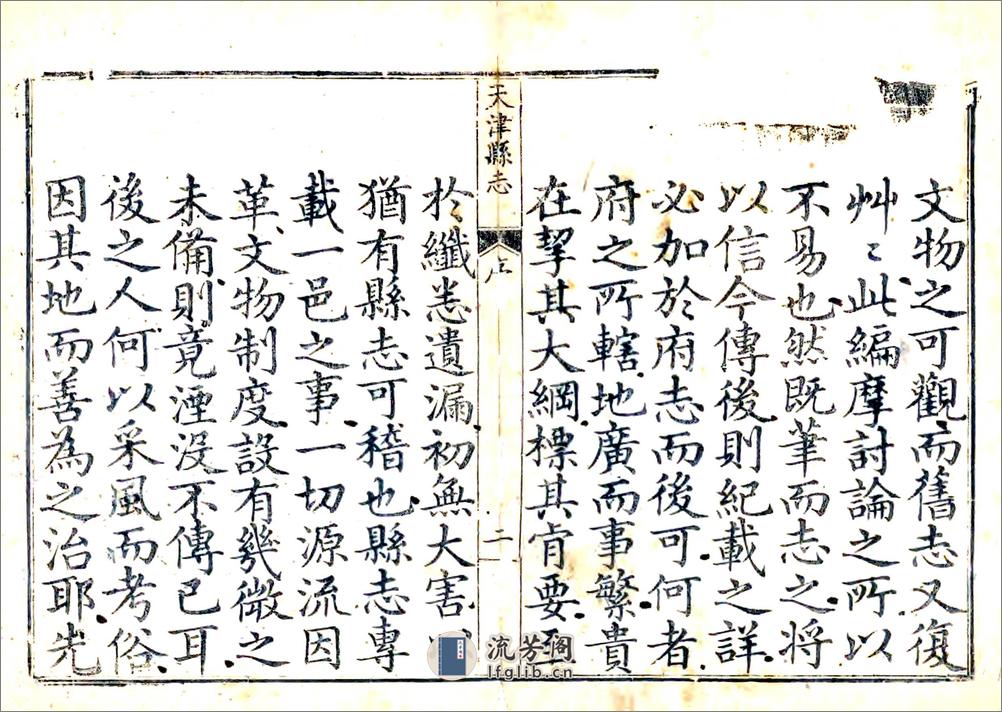 文物之可觀而舊志又復
艸〻此編摩討論之所以
不易也然既筆而志之將
以信今傳後則紀載之詳
必加於府志而後可何者
府之所轄地廣而事繁貴
在挈其大綱標其肯要至
天津縣志
序
二
於纖悉遺漏初無大害
猶有縣志可稽也縣志專
載一邑之事一切源流因
革文物制度設有幾微之
未備則竟湮沒不傳已耳
後之人何以采風而考俗
因其地而善為之治耶先
流芳阁
lfglib.cn